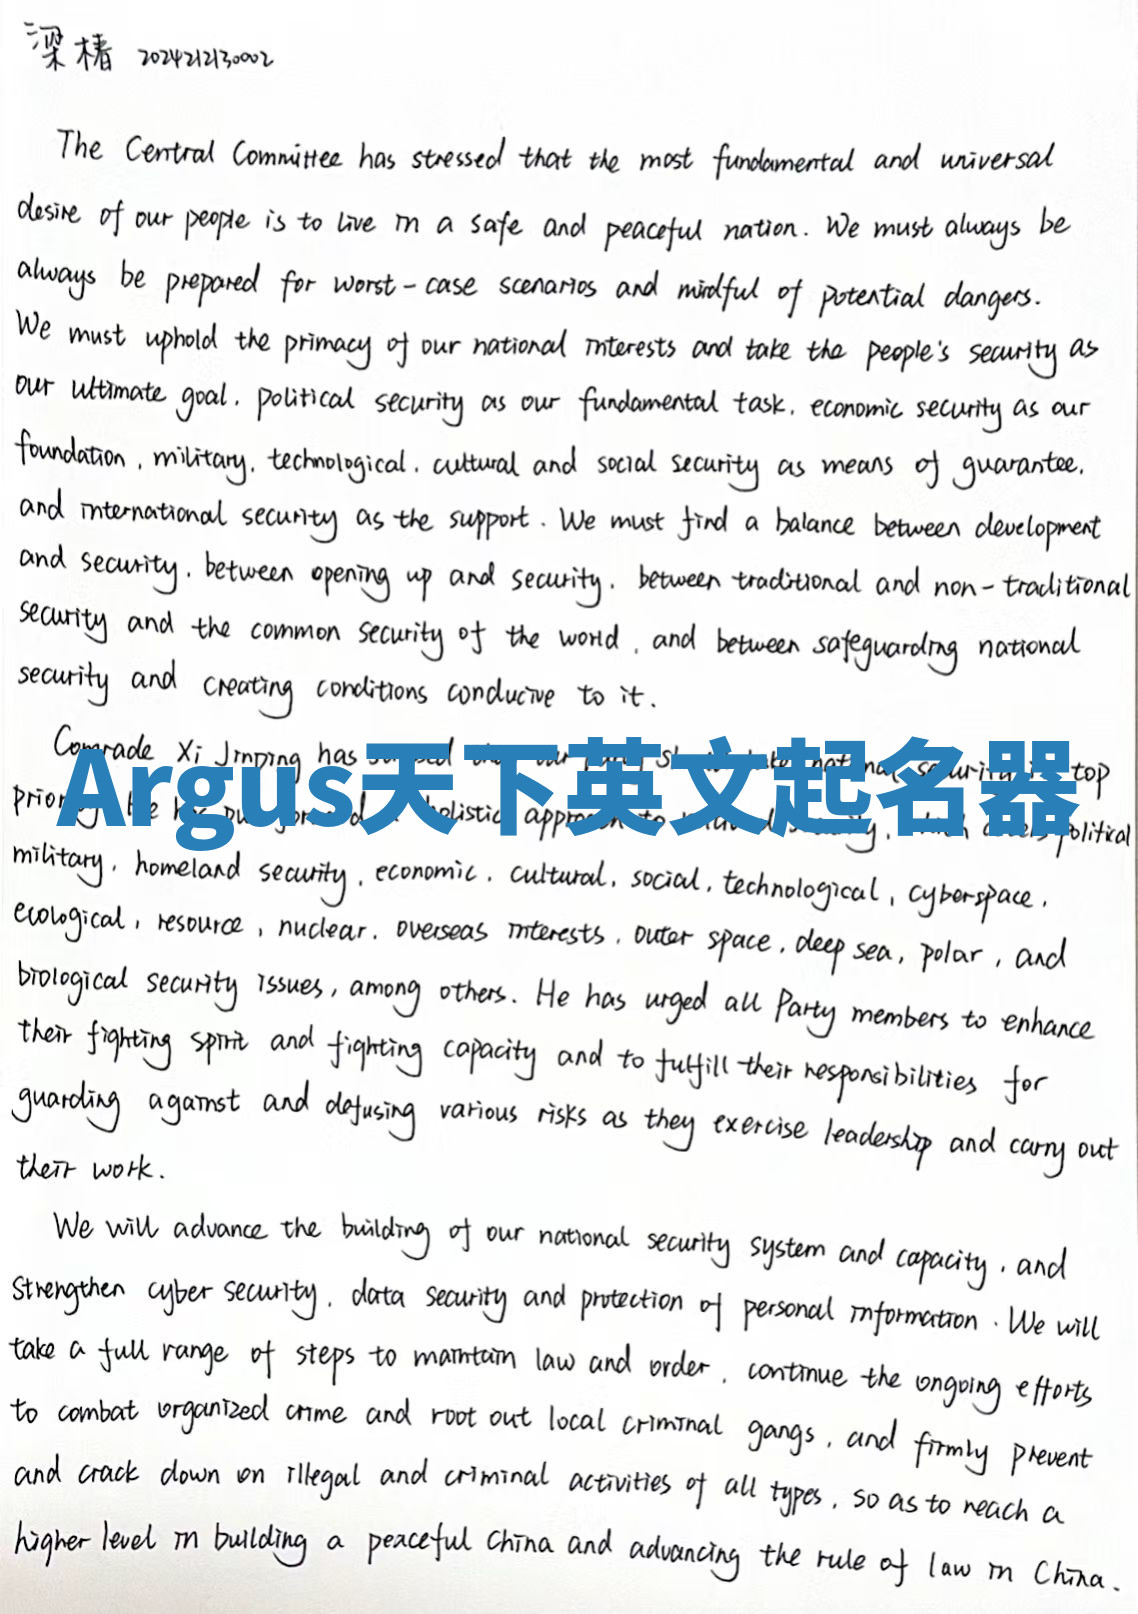 梁椿 2024212130002
The Central Committee has stressed that the most fundamental and universal
desire of our people is to live in a safe and peaceful nation. We must always be
always be prepared for worst-case scenarios and mindful of potential dangers.
We must uphold the primacy of our national interests and take the people's security as
our ultimate goal, political security as our fundamental task, economic security as our
foundation, military, technological, cultural and social security as means of guarantee,
and international security as the support. We must find a balance between development
and security, between opening up and security, between traditional and non-traditional
security and the common security of the world, and between safeguarding national
security and creating conditions conducive to it.
Comrade Xi Jinping has top
Argus天下英文起名器
holistic political
military, homeland security, economic, cultural, social, technological, cyberspace,
ecological, resource, nuclear, overseas interests, outer space, deep sea, polar, and
biological security issues, among others. He has urged all Party members to enhance
their fighting spirit and fighting capacity and to fulfill their responsibilities for
guarding against and defusing various risks as they exercise leadership and carry out
their work.
We will advance the building of our national security system and capacity, and
strengthen cyber security, data security and protection of personal information. We will
take a full range of steps to maintain law and order, continue the ongoing efforts
to combat organized crime and root out local criminal gangs, and firmly prevent
and crack down on illegal and criminal activities of all types, so as to reach a
higher level in building a peaceful China and advancing the rule of law in China.